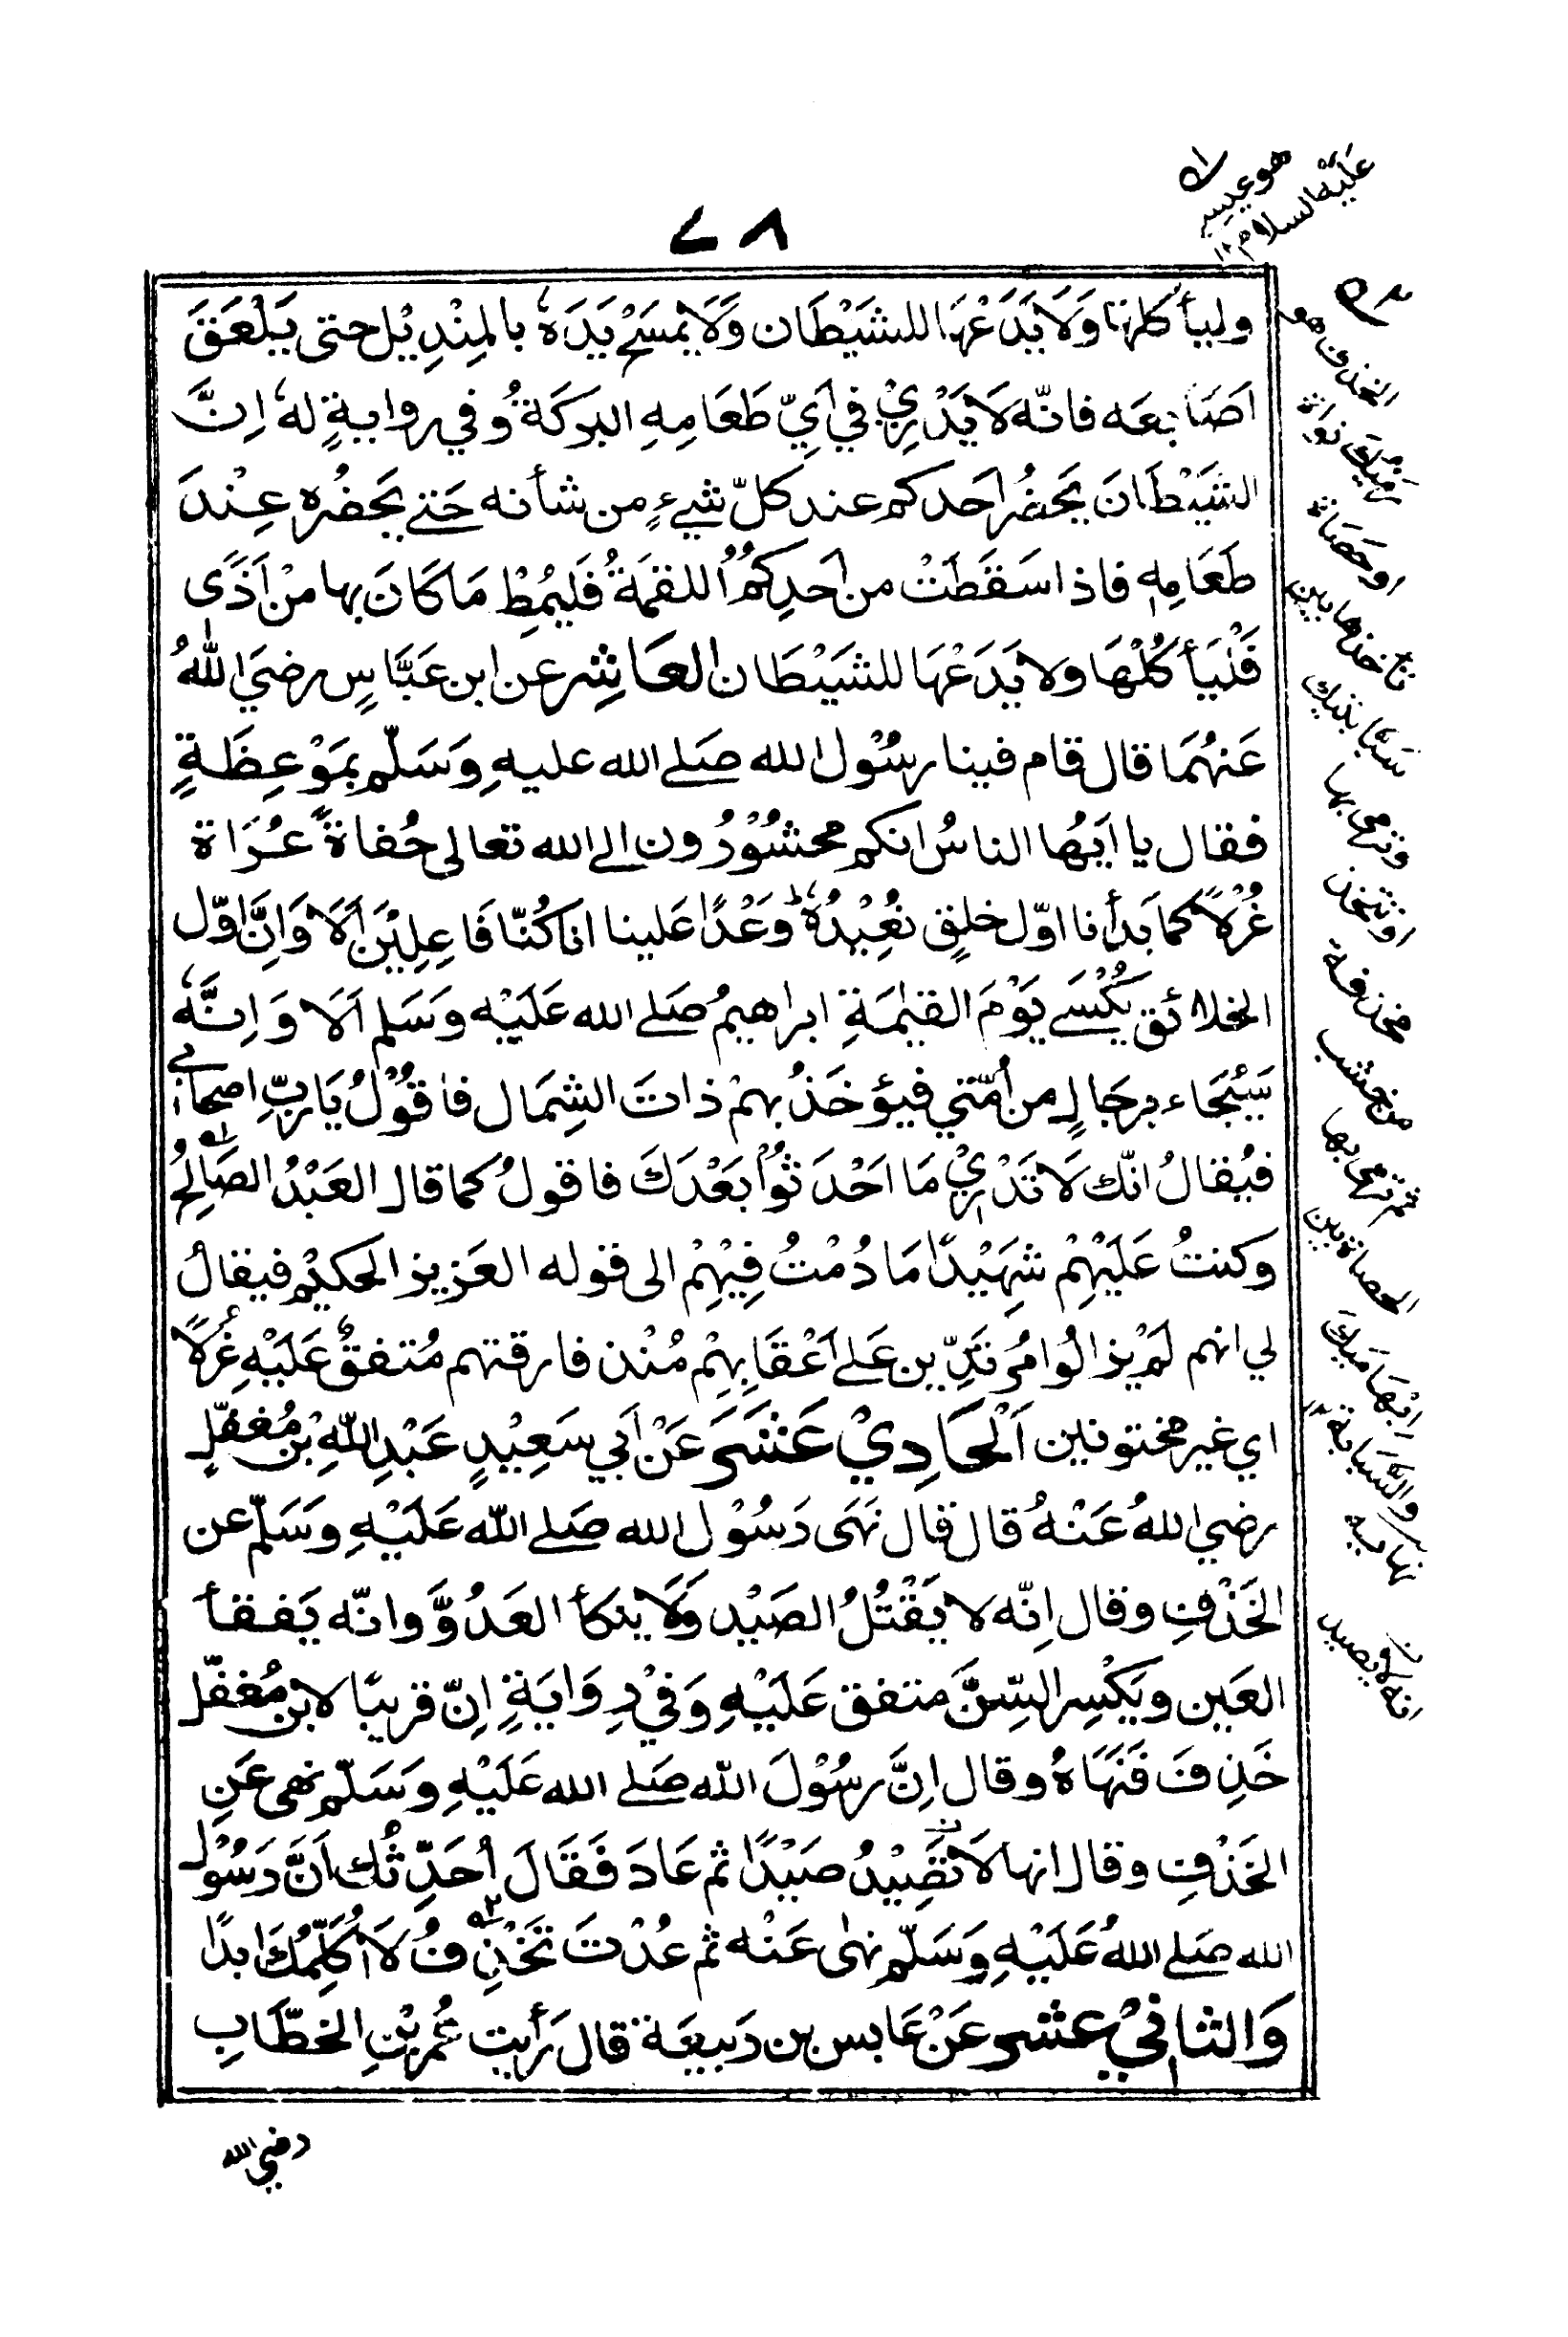 ٧٨
هو عيسى
عليه السلام ١٢
وليأكلها وَلَا يَدَعْهَا للشَيْطَان وَلَا يمسَحْ يَدَهٗ بالمِنْدِيْل حتى يَلْعَقَ
اَصَابعَه فانّه لَا يَدْرِيْ في اَيّ طَعَامِهِ البركَةُ وفي روايةٍ لهٗ اِنَّ
الشَيْطَانَ يَحضُر اَحَدكم عند كلّ شيءٍ من شأنه حَتى يَحضُره عِنْدَ
طَعَامِهٖ فاذا سَقَطَتْ من اَحدِكُمُ اللقمَةُ فَليُمِطْ مَا كَانَ بها مِنْ اَذًى
فَلْيَأكُلْهَا ولا يَدَعْهَا للشَيْطَان العَاشِر عن ابن عَبَّاسٍ رضيَ اللهُ
عَنهُمَا قال قام فينا رسُوْل الله صَلے الله عليهِ وَسَلّم بمَوْعِظَةٍ
فقال يا اَيُها الناسُ انكم محشُوْرُون الى الله تعالى حُفاةً عُرَاة
غُرْلًا كما بَدأنا اوّل خلقٍ نُعِيْدُهٗ وَعْدًا عَلينا انا كُنّا فَاعِلِيْنَ اَلَا وَاِنَّ اوّل
الخلائق يُكْسَے يَوْمَ القيٰمَةِ ابراهيمُ صَلے الله عَلَيْه وَسَلم اَلَا وَاِنَّهٗ
سَيُجَاء برجَالٍ من اُمّتي فيؤخَذُ بهمْ ذاتَ الشِمَال فاَقُوْلُ يَا ربِّ اصحابي
فيُقالُ انّك لَا تَدْرِيْ مَا اَحْدَثُوْا بَعْدَكَ فاقولُ كما قال العَبْدُ الصَالِحُ
وكنتُ عَلَيْهِمْ شَهِيْدًا مَا دُمْتُ فِيْهِمْ الى قوله العَزِيز الحكيْم فيقالُ
لي انهم لَمْ يزالُوا مُرتَدّين عَلے اَعْقَابِهِمْ مُنْذ فارقتهم مُتفقٌ عَلَيْهِ غُرْلًا
اي غير مختونين اَلْحَادِيْ عَشَر عَنْ اَبي سَعِيْدٍ عَبْدِ اللّٰهِ بْن مُغفلٍ
رضي اللهُ عَنْهُ قال قال نَهَى رَسُوْل الله صَلے اللّٰه عَلَيْهِ وَسَلّم عن
الخَذْفِ وقال اِنّه لا يَقْتُلُ الصَيْد وَلَا ينكأ العَدُوَّ وانّه يَفقأ
العَين ويَكْسِر السِنَّ متفق عَلَيْهِ وَفيْ رِوَايَةٍ اِنّ قريبًا لابن مُغفّل
خَذفَ فَنَهَاهُ وقال اِنَّ رسُوْلَ اللّٰه صَلے الله عَلَيْهِ وَسَلّم نهى عَنِ
الخَذْفِ وقال انها لَا تَصِيْدُ صَيْدًا ثم عَادَ فَقَالَ اُحَدّثُك اَنَّ رَسُوْل
الله صَلے اللهُ عَلَيْهِ وَسَلّم نهٰى عَنْه ثم عُدْتَ تَخْذفُ لَا اُكَلِّمُكَ ابدًا
وَالثاني عشر عَنْ عَابس بن رَبيعَة قال رَأيت عُمَر بْنِ الخطّابِ
رضي الله
الخذف هو
رميك نواة
او حصاة
تاخذها بين
سبابتيك
وترمي بها
او تتخذ
مخذفة
من خشب
ثم ترمي بها
الحصاة بين
ابهامك
والسبابة
نهاية
انه لا يصيد